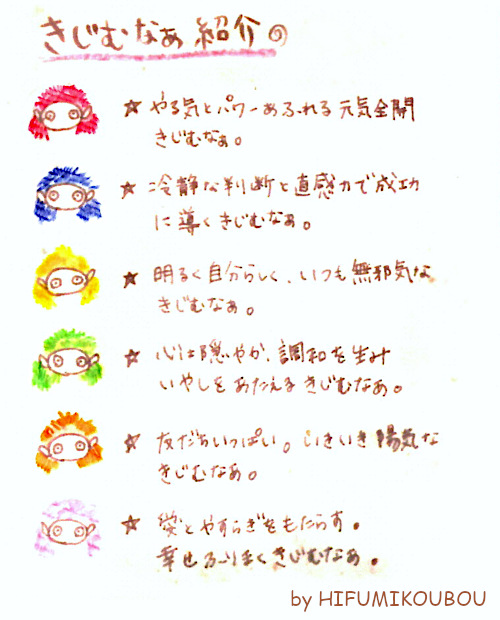 きじむなぁ紹介の
★ やる気とパワーあふれる元気全開
きじむなぁ。
★ 冷静な判断と直感力で成功
に導くきじむなぁ。
★ 明るく自分らしく、いつも無邪気な
きじむなぁ。
★ 心は穏やか、調和を生み
いやしをあたえるきじむなぁ。
★ 友だちいっぱい。いきいき陽気な
きじむなぁ。
★ 愛とやすらぎをもたらす。
幸せふりまくきじむなぁ。
by HIFUMIKOUBOU